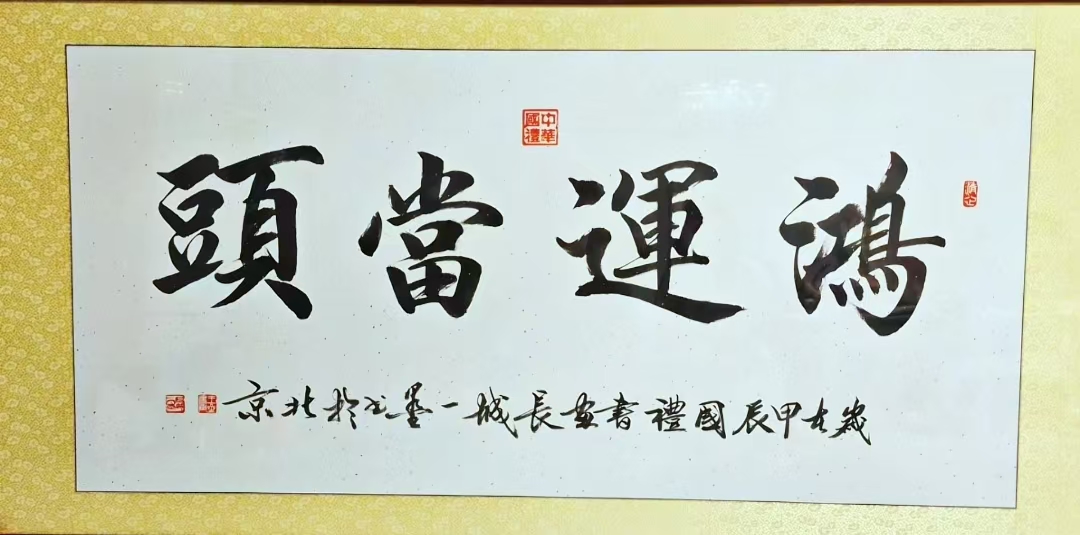 鴻運當頭
中華國禮
歲在甲辰國禮書畫長城一墨書於北京